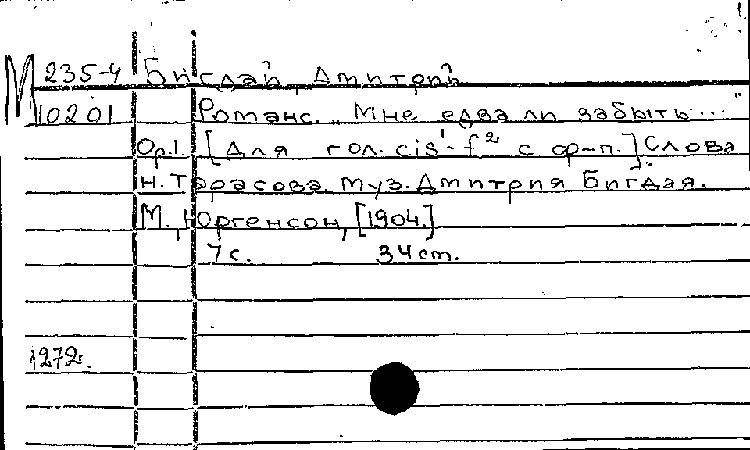 М 235-4 Бигдай, Дмитрий
10201 Романс. „Мне едва ли забыть..."
Op.1 [Для гол. cis¹-f² с ф-п.] Слова
Н. Тарасова. Муз. Дмитрия Бигдая.
М., Юргенсон, [1904.]
7 с. 34 cm.
1972г.